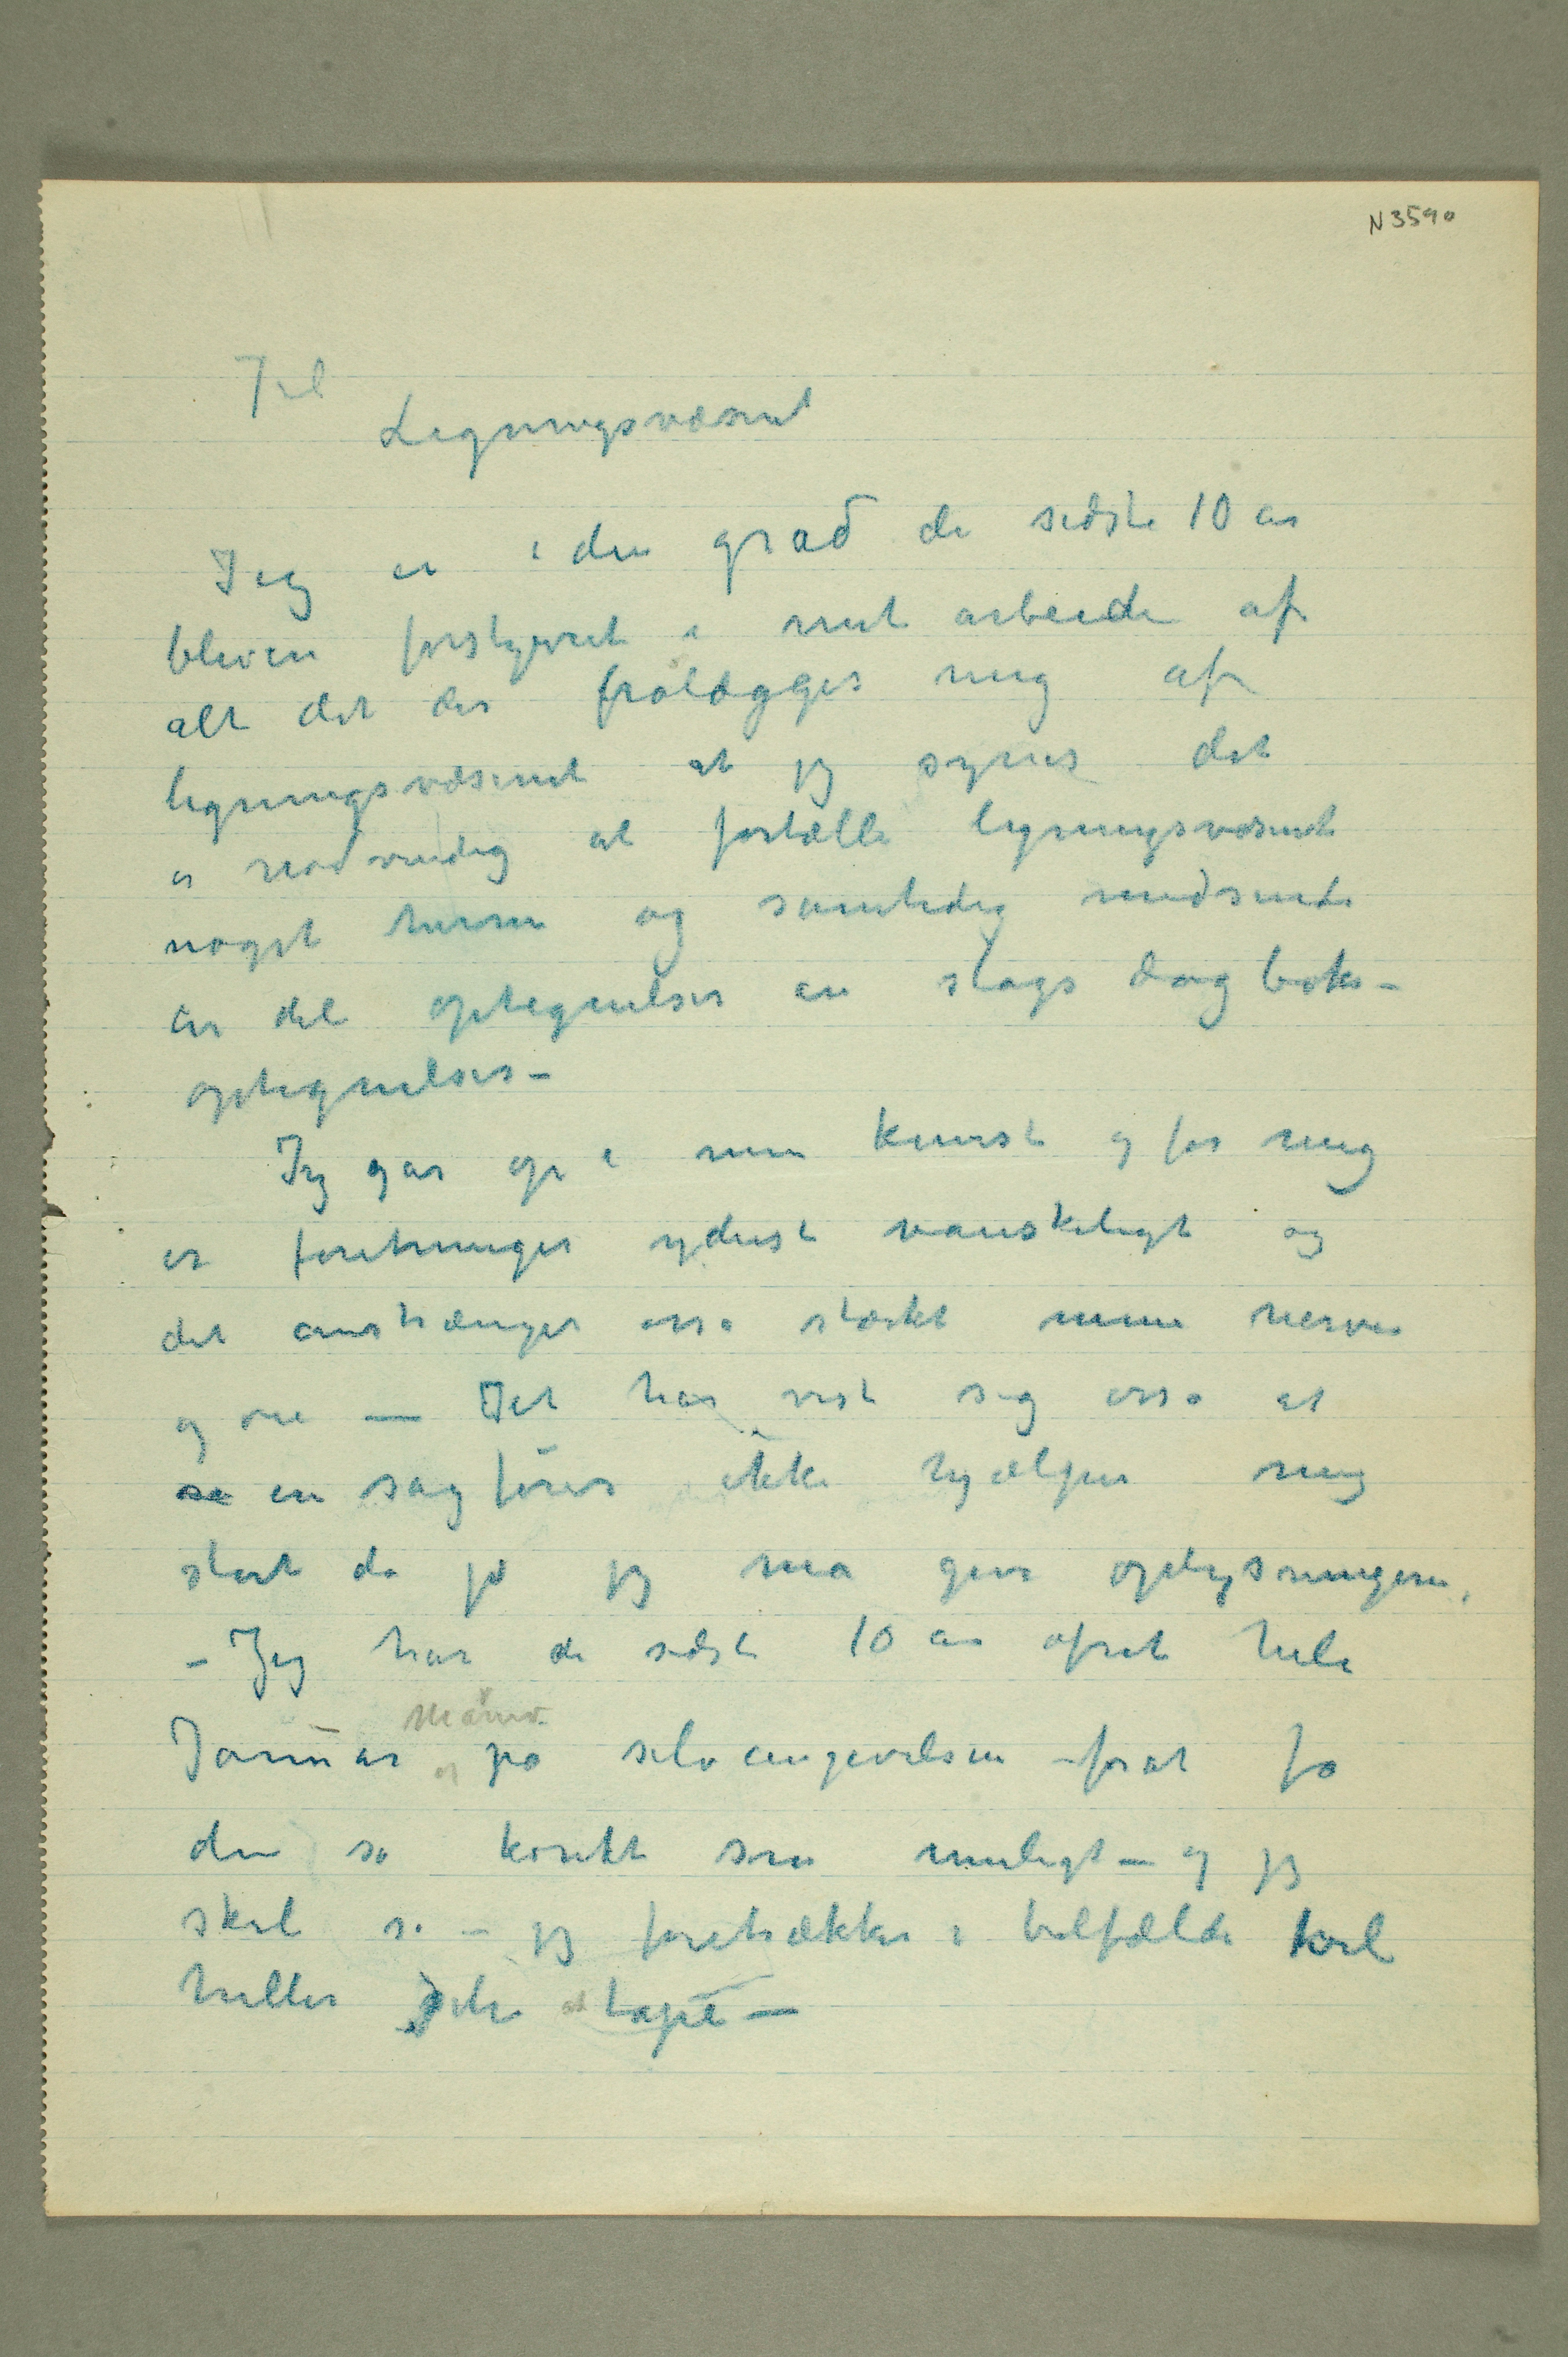 N 3590
Til
Ligningsvæsnet
Jeg er i den grad de sidste 10 år
bleven forstyrret i mit arbeide af
alt det der pålægges mig af
ligningsvæsenet at jeg synes det
er nødvendig at fortælle ligningsvæsnet
noget herom og samtidig medsende
en del optegnelser en slags dagboks-
optegnelser –
Jeg går op i min kunst og for mig
er forretninger yderst vanskeligt og
det anstrænger osså stærkt mine nerver
og øie — Det har vist sig osså at
en sagfører ikke hjælper mig
stort da jo jeg må give oplysningerne,
– Jeg har de sidste 10 år ofret hele
Månd.
Januar på selvangivelsen – for at få
den så korekt som muligt – og jeg
skal så – jeg foretrækker i tilfælde
heller at tape —